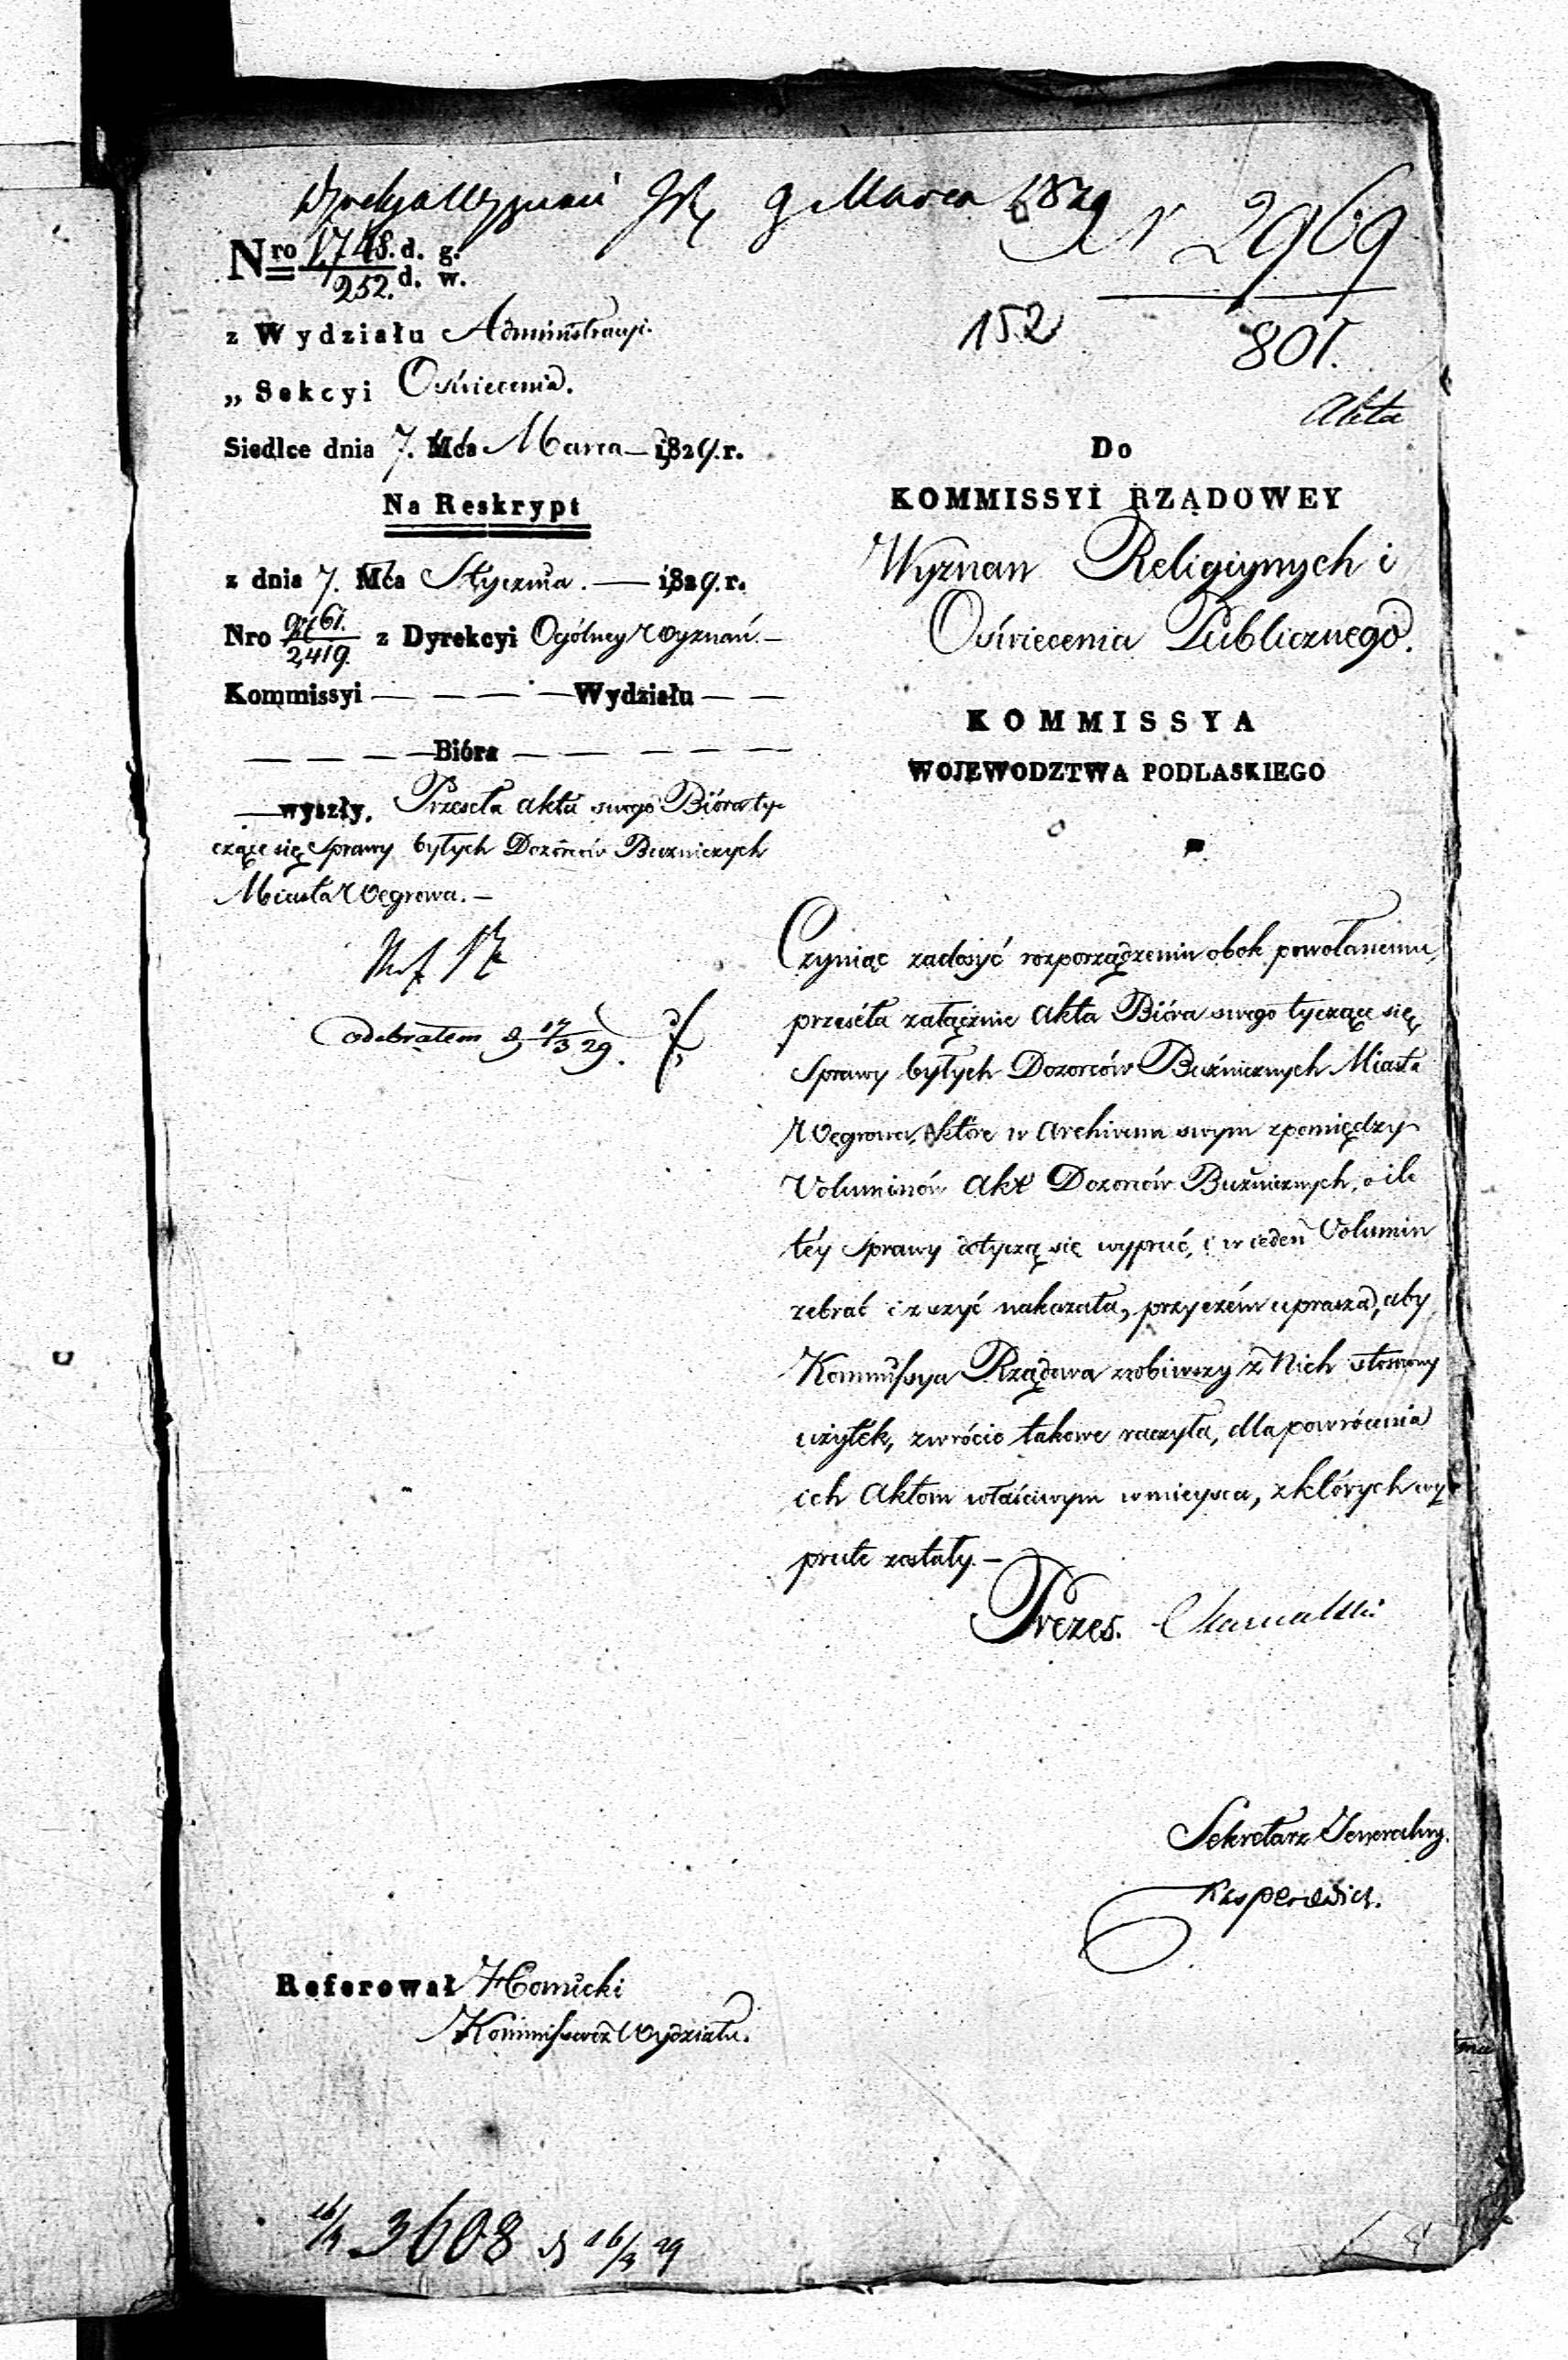 9 Marca 1829
N 2969
801.
152
Akta
Nro 1748. d. g.
252. d. w.
z Wydziału Administracyi.
„ Sekcyi Oświecenia.
Siedlce dnia 7. Mca Marca — 1829. r.
Na Reskrypt
z dnia 7. Mca Stycznia. — 1829. r.
Nro
2,419. z Dyrekcyi Ogólney Wyznań. —
Kommissyi — — — — Wydziału — —
— — — — Bióra — — — — —
— wyszły. Przeseła akta swego Bióra ty-
czące się Sprawy byłych Dozorców Buzniczych
Miasta Węgrowa. —
odebrałem d 17/3 29.
Do
KOMMISSYI RZĄDOWEY
Wyznan Religiynych i
Oświecenia Publicznego.
KOMMISSYA
WOJEWODZTWA PODLASKIEGO
Czyniąc zadosyć rozporządzeniu obok powołanemu,
przeséła załącznie Akta Bióra swego tyczące się
Sprawy byłych Dozorców Bużnicznych Miasta
Węgrowa, które w Archiwum swym zpomiędzy
Voluminów Akt Dozorców Bużnicznych, o ile
téy Sprawy dotyczą się wypruć, i w ieden Volumin
zebrać i zszyć nakazała, przyczém uprasza, aby
Kommissya Rządowa zrobiwszy z Nich stosowny
użytek, zwrócić takowe raczyła, dla powrócenia
ich Aktom właściwym w mieysca, z których wy
prute zostały. —
Prezes.
Sekretarz Jeneralny.
Kasperowicz.
Referował Hornicki
Kommissarz Wydziału.
16/3 3608 d 16/3 29